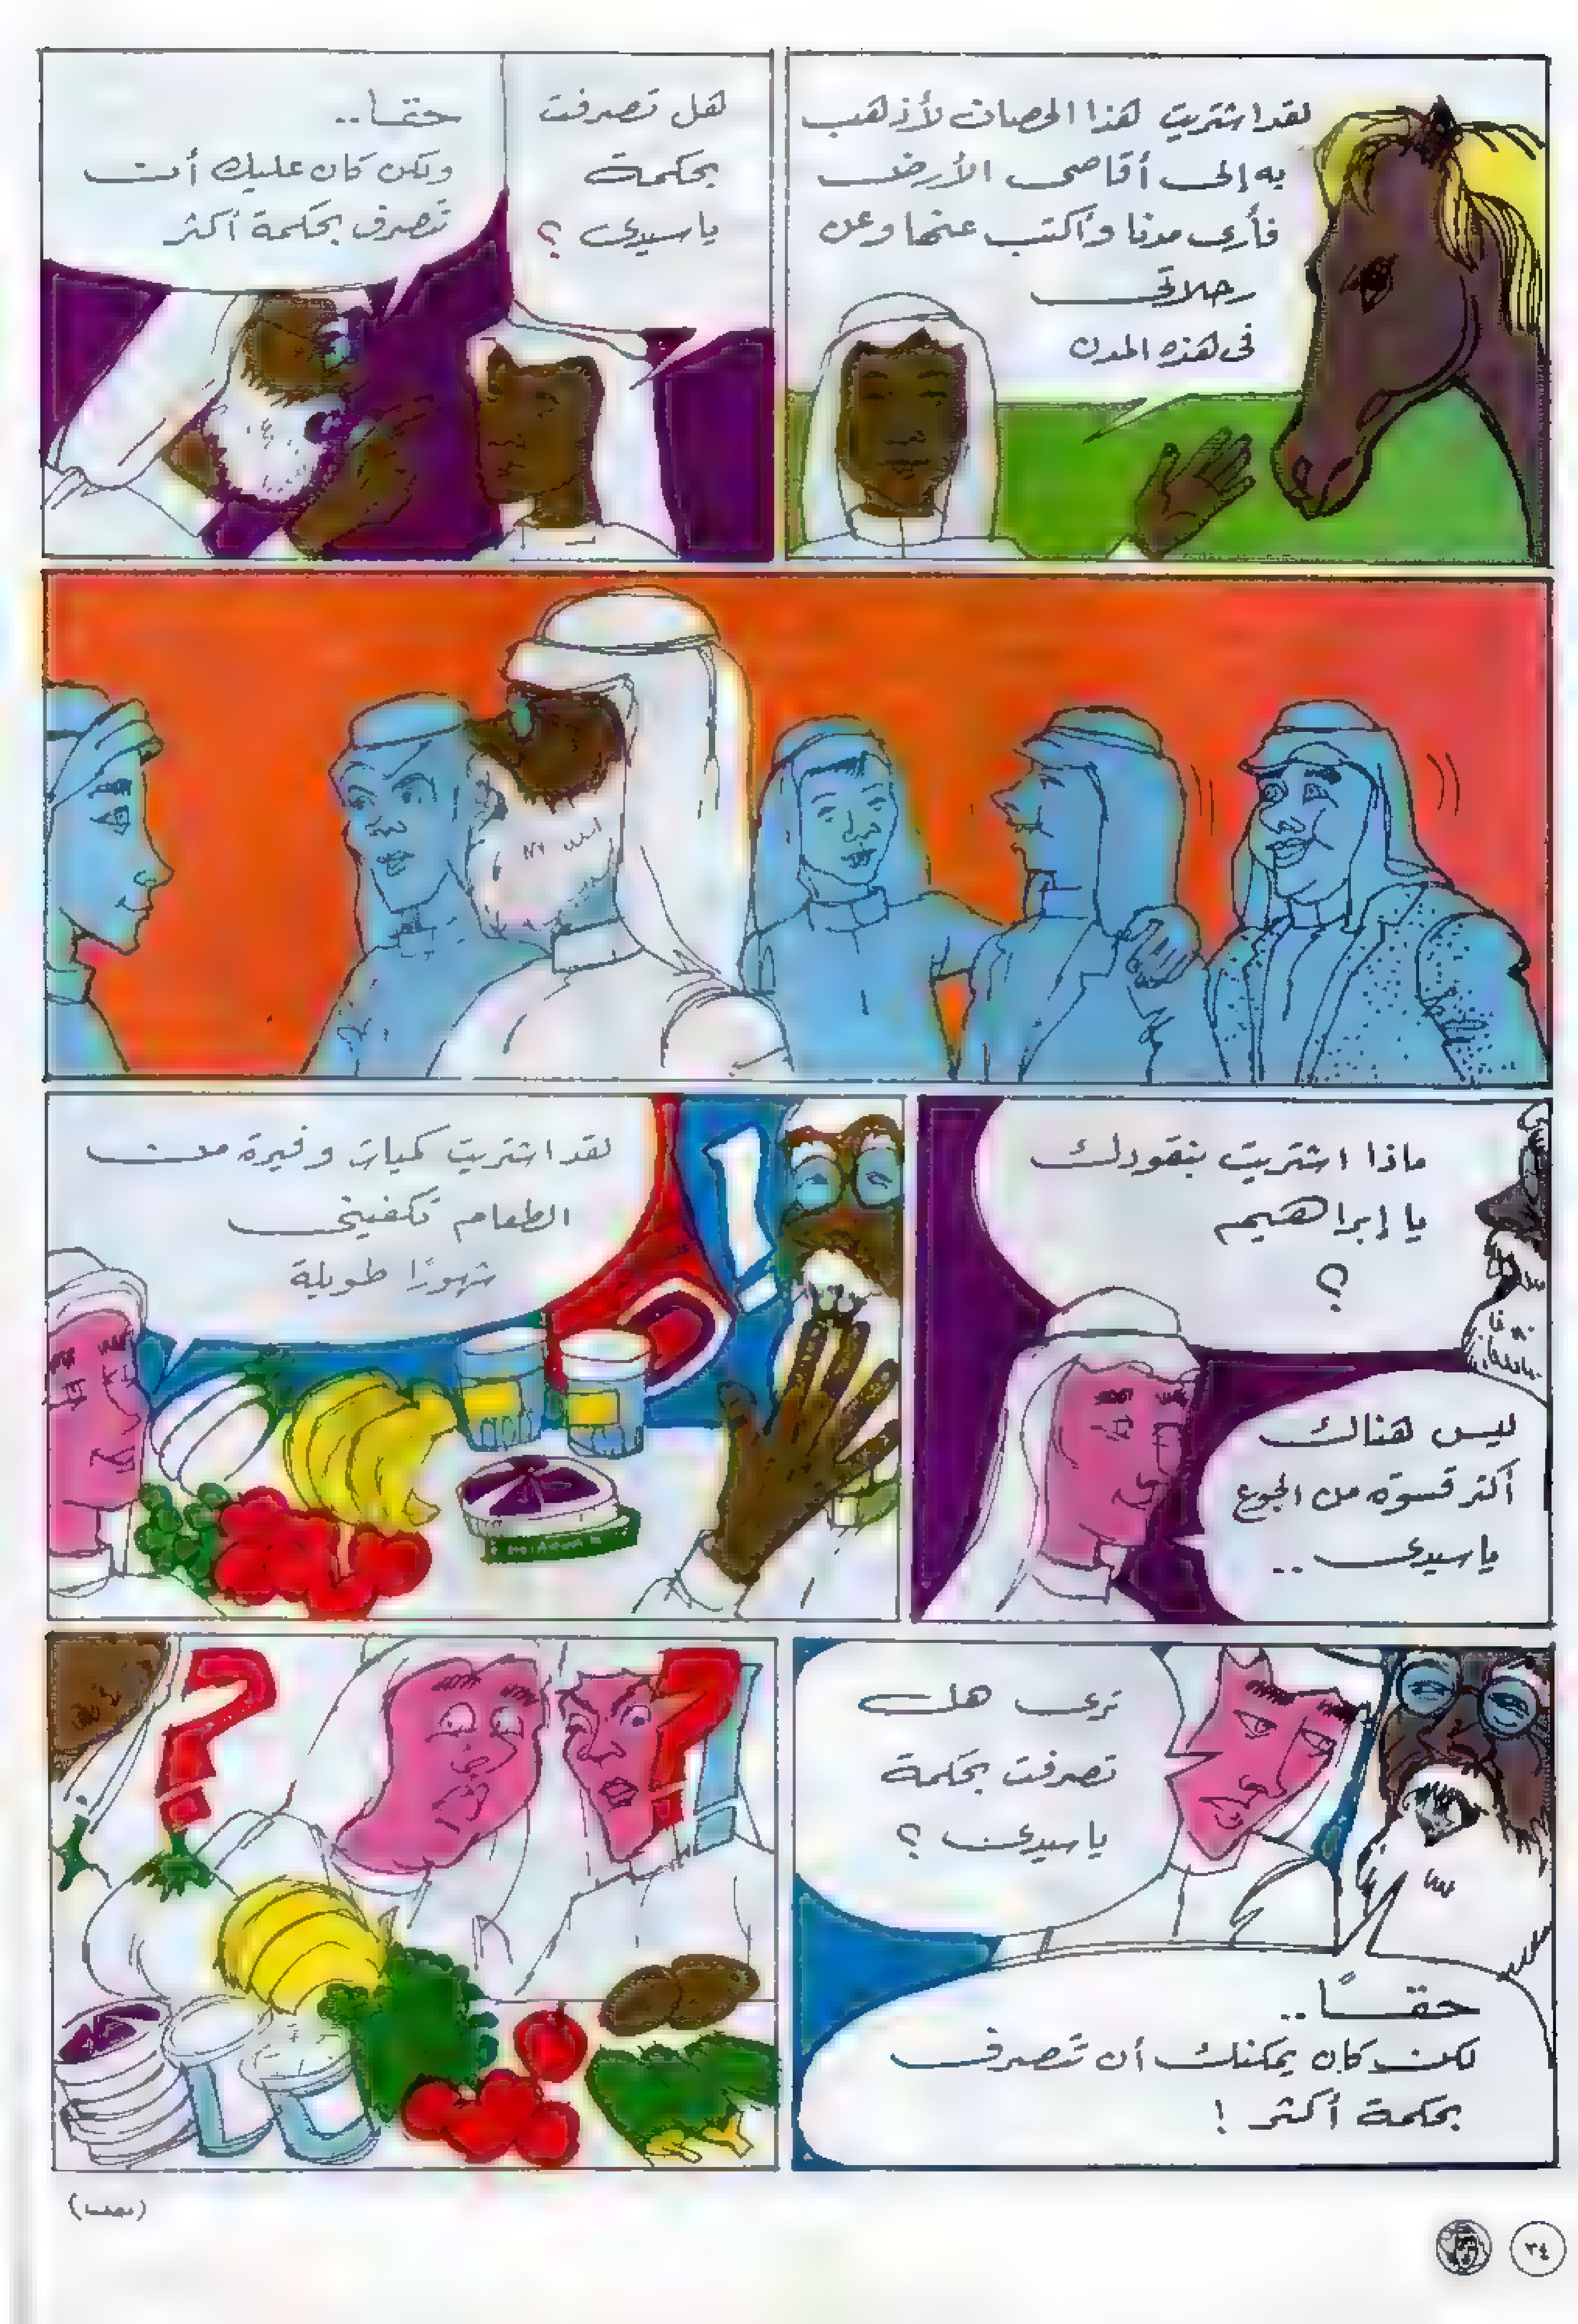 لقد اشتريت هذا الحصان لأذهب
به إلى أقاصى الأرض
فأرى مدنا وأكتب عنها وعن
رحلاتى
فى هذه المدن
هل تصرفت
بحكمة
ياسيدى ؟
حقا..
ولكن كان عليك أن
تتصرف بحكمة أكثر
ماذا اشتريت بنقودك
يا إبراهيم
؟
ليس هناك
أكثر قسوة من الجوع
ياسيدى ..
لقد اشتريت كميات وفيرة من
الطعام تكفينى
شهورًا طويلة
ترى هل
تصرفت بحكمة
ياسيدى ؟
حقـًا..
لكن كان يمكنك أن تتصرف
بحكمة أكثر !
؟
؟!
٣٤